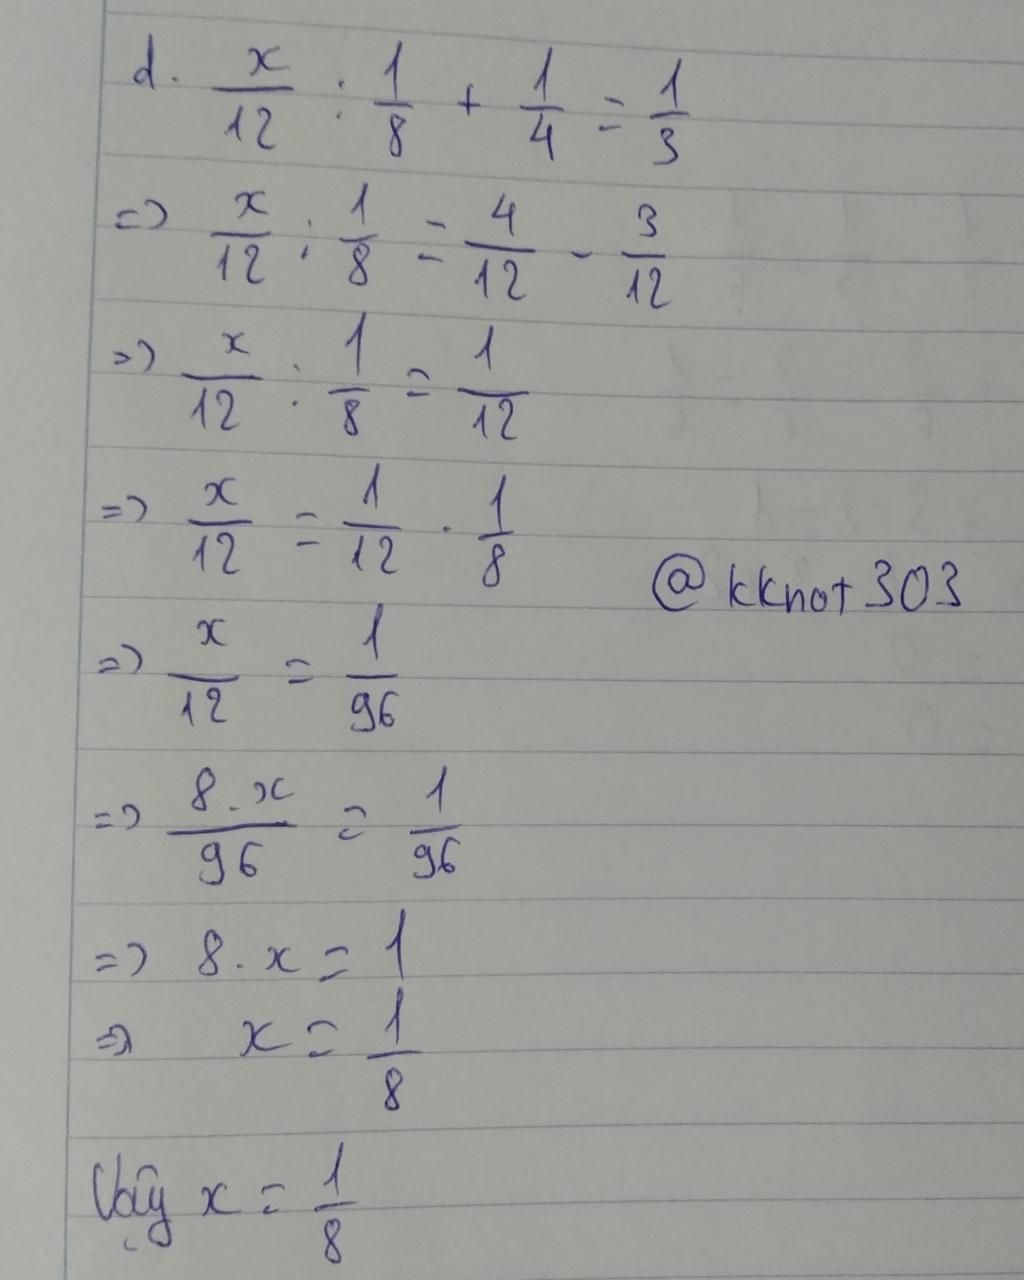 d. x/12 : 1/8 + 1/4 = 1/3
=> x/12 : 1/8 = 4/12 - 3/12
=> x/12 : 1/8 = 1/12
=> x/12 = 1/12 . 1/8
@kknot303
=> x/12 = 1/96
=> 8.x/96 = 1/96
=> 8.x = 1
=> x = 1/8
Vậy x = 1/8